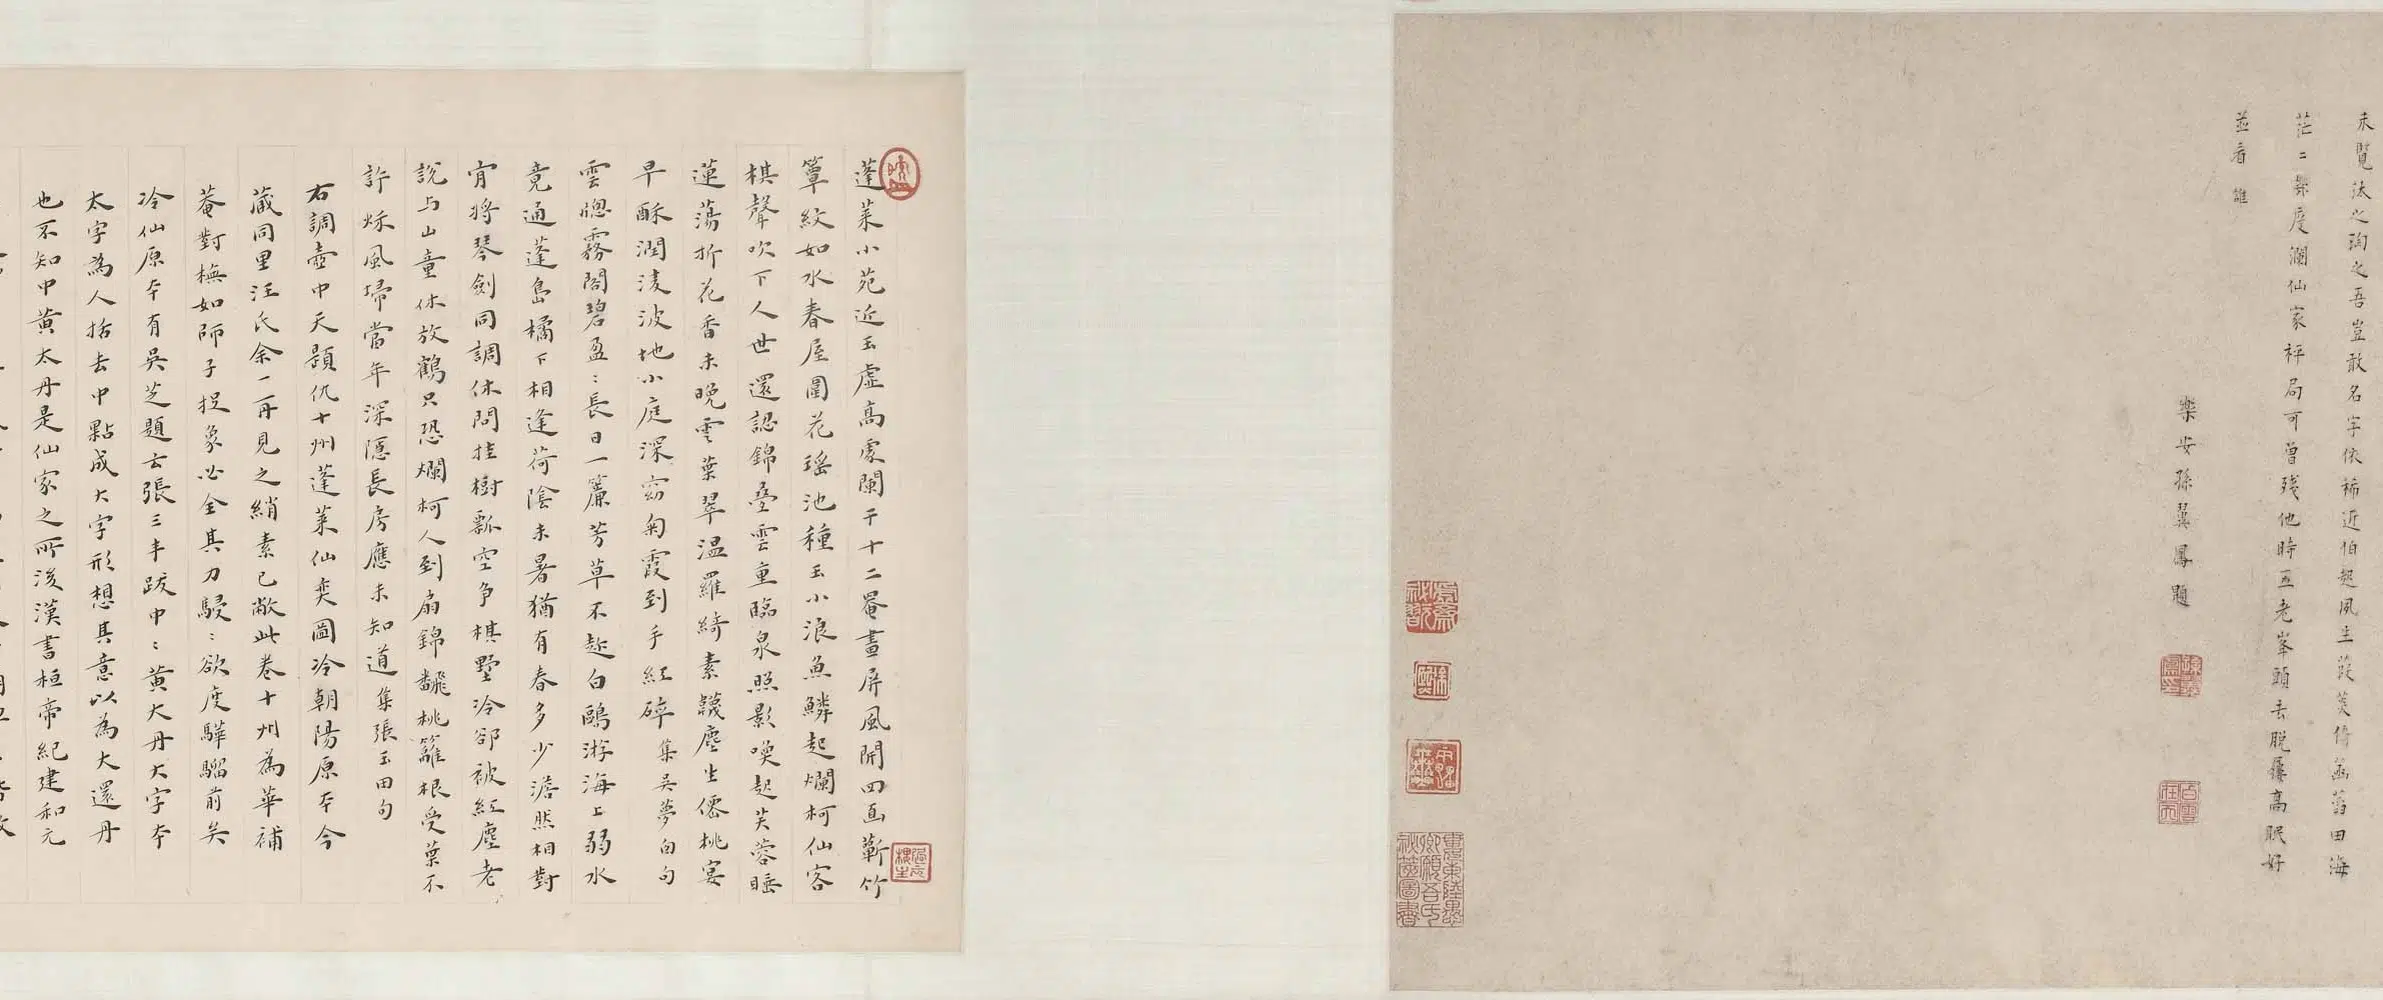 未覽汰之陶之吾豈敢名字依稀近伯起風生葭莢傳函蒥田海
茫〻鄰度瀾仙家枰局可曾殘他時五老峯頭去脫屣高眠好
並看 誰
樂安孫翼鳳題
蓬萊小苑近玉虛高處闌干十二罨畫屏風開四面蘄竹
簟紋如水春屋圍花瑤池種玉小浪魚鱗起爛柯仙客
棋聲吹下人世還認錦疊雲重臨泉照影喚起芙蓉睡
蓮蕩折花香未晚雲葉翠溫羅綺素襪塵生僊桃宴
早酥潤淩波地小庭深窈菊霞到手紅碎集吳夢白句
雲牕霧閣碧盈〻長日一簾芳草不起白鷗游海上弱水
竟通蓬島橘下相逢荷陰未暑猶有春多少澹然相對
肎將琴劍同調休問挂樹瓢空爭棋墅冷卻被紅塵老
說与山童休放鶴只恐爛柯人到扇錦翻桃籬根受葉不
許秌風埽當年深隱長房應未知道集張玉田句
右調壺中天題仇十州蓬萊仙奕圖冷朝陽原本今
藏同里汪氏余一再見之綃素已敝此卷十州為華補
菴對橅如師子捉象必全其力駸〻欲度驊騮前矣
冷仙原本有吳芝題云張三丰跋中〻黃大丹大字本
太字為人括去中點成大字形想其意以為大還丹
也不知中黃太丹是仙家之所後漢書桓帝紀建和元